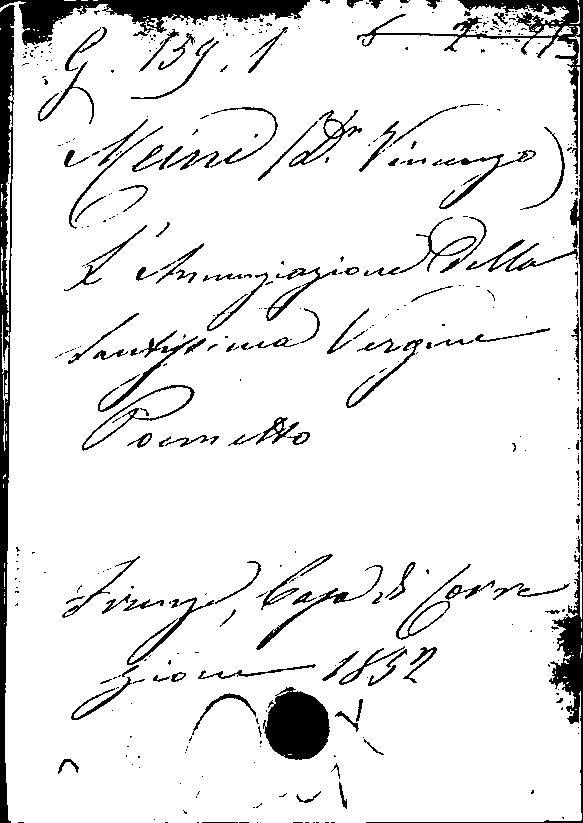 G. 159. 1
Meini (Dr. Vincenzo)
L'Annunziazione Della
Santissima Vergine
Poemetto
Firenze, Casa di Corre
zione 1852